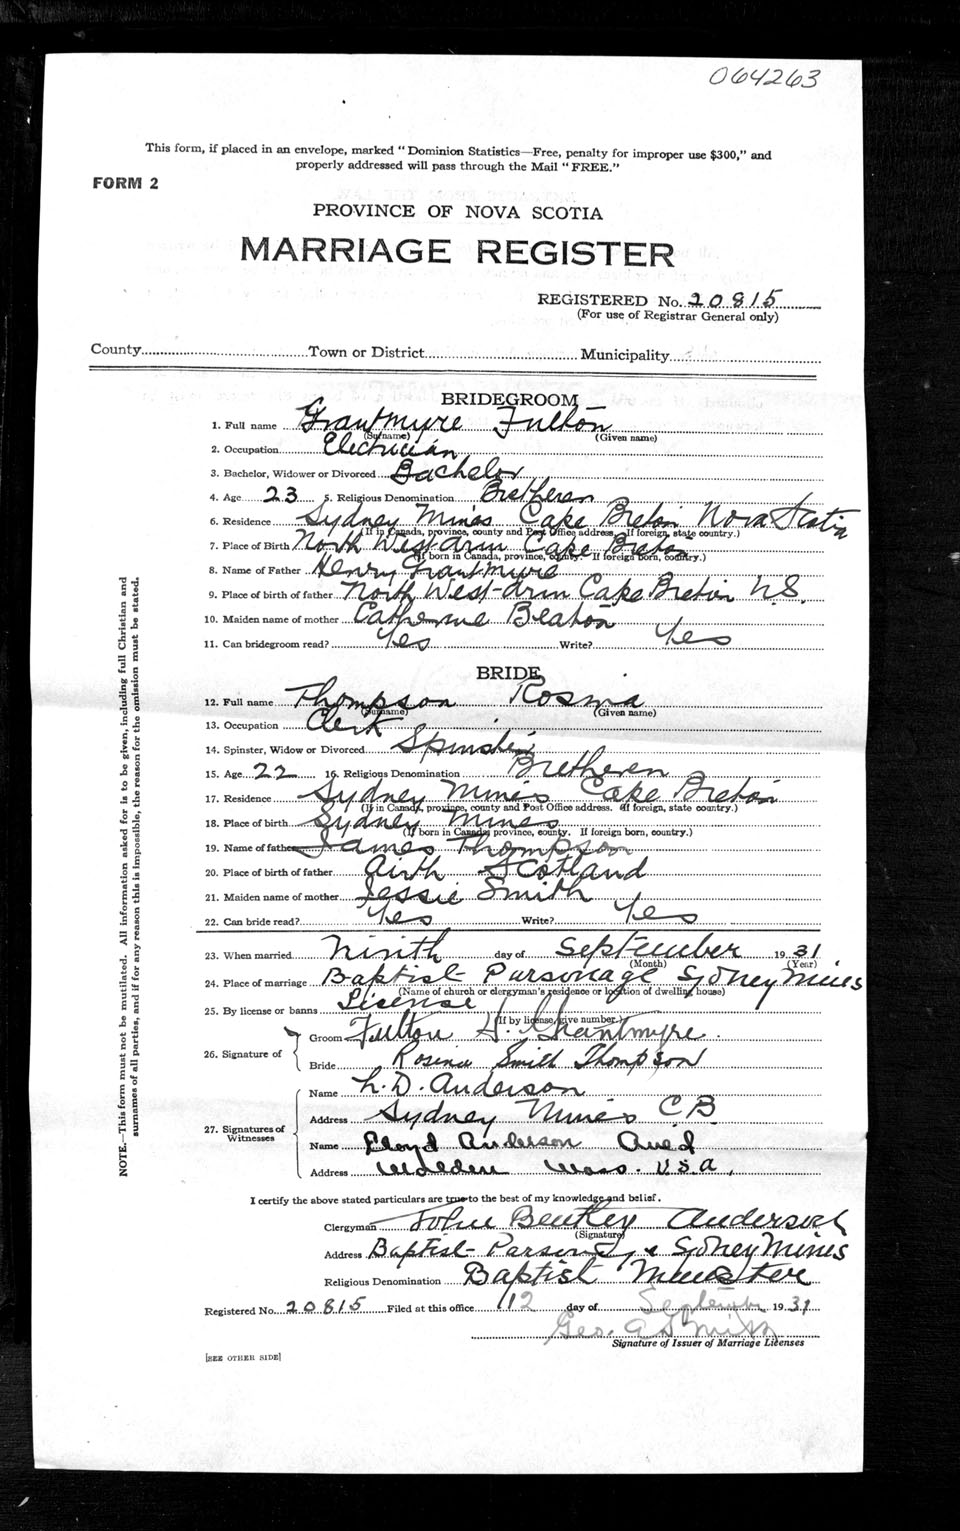 064263
This form, if placed in an envelope, marked "Dominion Statistics—Free, penalty for improper use $300," and
properly addressed will pass through the Mail "FREE."
FORM 2
PROVINCE OF NOVA SCOTIA
MARRIAGE REGISTER
REGISTERED No. 20815
(For use of Registrar General only)
County Town or District Municipality
BRIDEGROOM
1. Full name Grantmyre Fulton
(Surname) (Given name)
2. Occupation Electrician
3. Bachelor, Widower or Divorced Bachelor
4. Age 23 5. Religious Denomination Bretheren
6. Residence Sydney Mines Cape Breton Nova Scotia
(If in Canada, province, county and Post Office address. If foreign, state country.)
7. Place of Birth North West-Arm Cape Breton
(If born in Canada, province, county. If foreign born, country.)
8. Name of Father Henry Grantmyre
9. Place of birth of father North West-Arm Cape Breton N.S.
10. Maiden name of mother Catherine Beaton
11. Can bridegroom read? Yes Write? Yes
BRIDE
12. Full name Thompson Rosina
(Surname) (Given name)
13. Occupation Clerk
14. Spinster, Widow or Divorced Spinster
15. Age 22 16. Religious Denomination Bretheren
17. Residence Sydney Mines Cape Breton
(If in Canada, province, county and Post Office address. If foreign, state country.)
18. Place of birth Sydney Mines
(If born in Canada, province, county. If foreign born, country.)
19. Name of father James Thompson
20. Place of birth of father Airth Scotland
21. Maiden name of mother Jessie Smith
22. Can bride read? Yes Write? Yes
23. When married Ninth day of September 1931
(Month) (Year)
24. Place of marriage Baptist Parsonage Sydney Mines
(Name of church or clergyman's residence or location of dwelling house)
25. By license or banns License
(If by license, give number.)
26. Signature of
Groom Fulton H. Grantmyre.
Bride Rosina Smith Thompson
27. Signatures of Witnesses
Name L. D. Anderson
Address Sydney Mines C.B.
Name Lloyd Anderson
Address Malden Mass. U.S.A.
I certify the above stated particulars are true to the best of my knowledge and belief.
Clergyman John Bentley Anderson
(Signature)
Address Baptist Parsonage Sydney Mines
Religious Denomination Baptist Minister
Registered No. 20815 Filed at this office 12 day of September 1931
Geo. A Smith
Signature of Issuer of Marriage Licenses
[SEE OTHER SIDE]
NOTE.—This form must not be mutilated. All information asked for is to be given, including full Christian and
surnames of all parties, and if for any reason this is impossible, the reason for the omission must be stated.